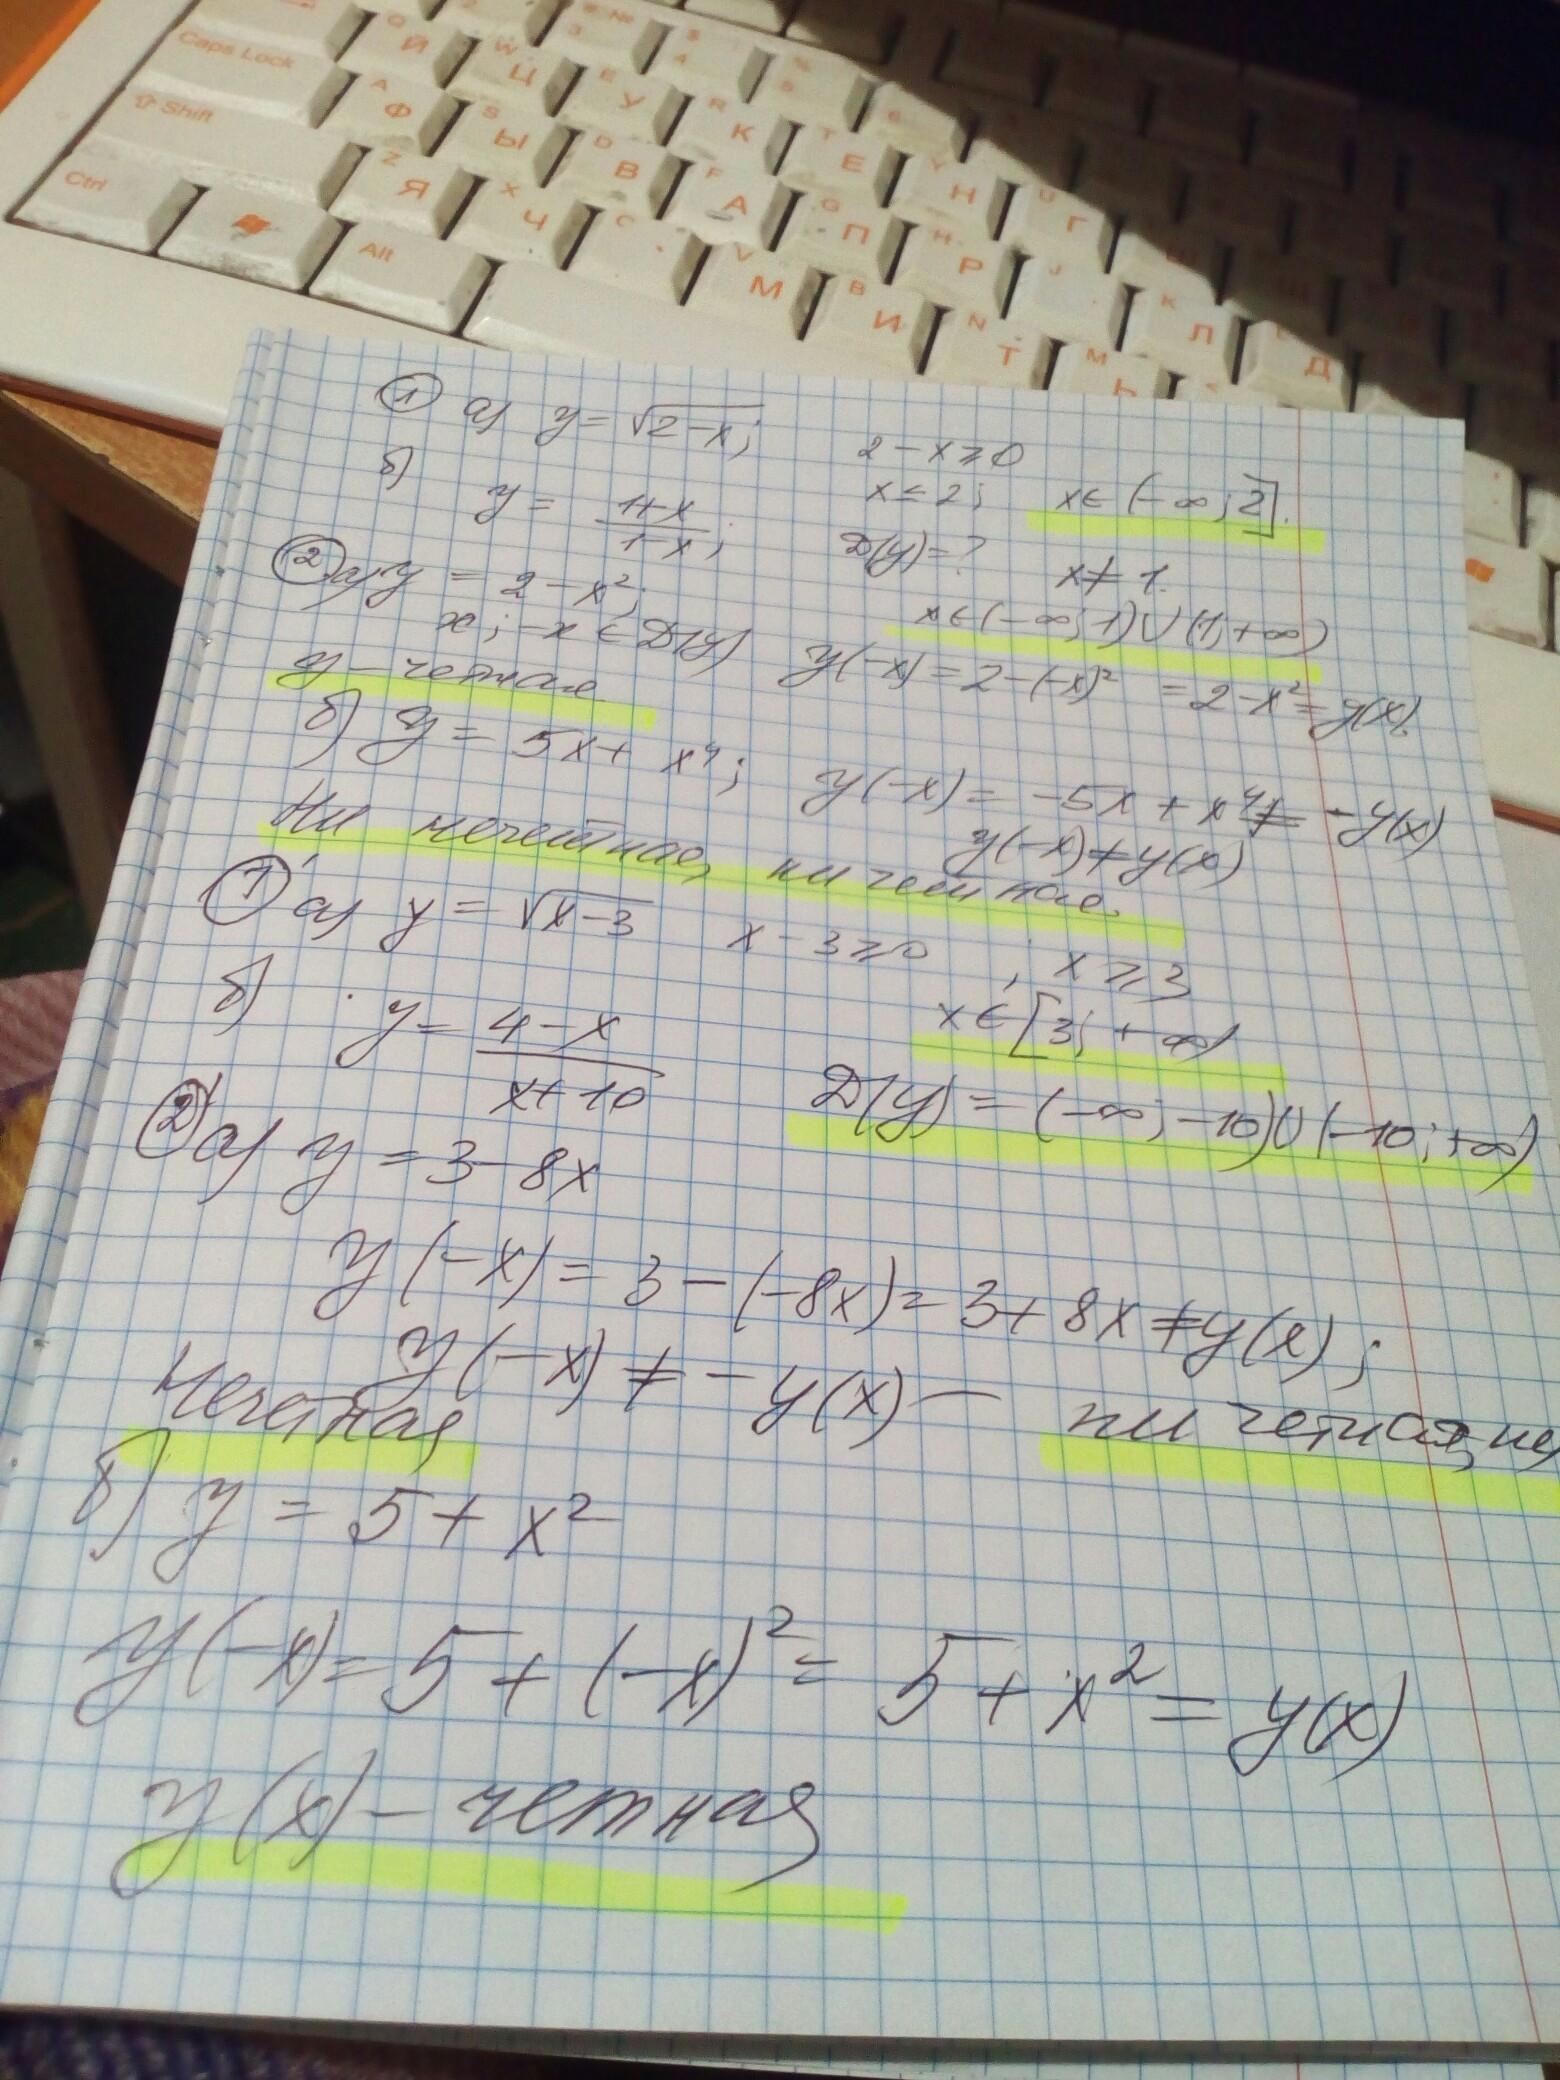 Caps Lock Й Ц У К Е Н Г
Shift Ф Ы В А П Р Л Д
Ctrl Alt Я Ч М И Т Ь
① а) y = √2-x; 2-x≥0
x≤2; x∈(-∞;2].
б) y = 1+x/1-x; D(y)=? x≠1.
x∈(-∞;1)∪(1;+∞)
② а) y = 2-x²;
x; -x ∈ D(y) y(-x)=2-(-x)² =2-x²=y(x).
y-четная
б) y = 5x+x⁴; y(-x)= -5x+x⁴≠ -y(x)
y(-x)≠y(x)
Ни нечётная, ни четная.
① а) y = √x-3 x-3≥0; x≥3
x∈[3;+∞)
б) y = 4-x/x+10 D(y)=(-∞;-10)∪(-10;+∞)
② а) y = 3-8x
y(-x)=3-(-8x)=3+8x≠y(x);
y(-x)≠-y(x) — ни четная, ни
нечетная
б) y = 5+x²
y(-x)=5+(-x)²=5+x²=y(x)
y(x)-четная